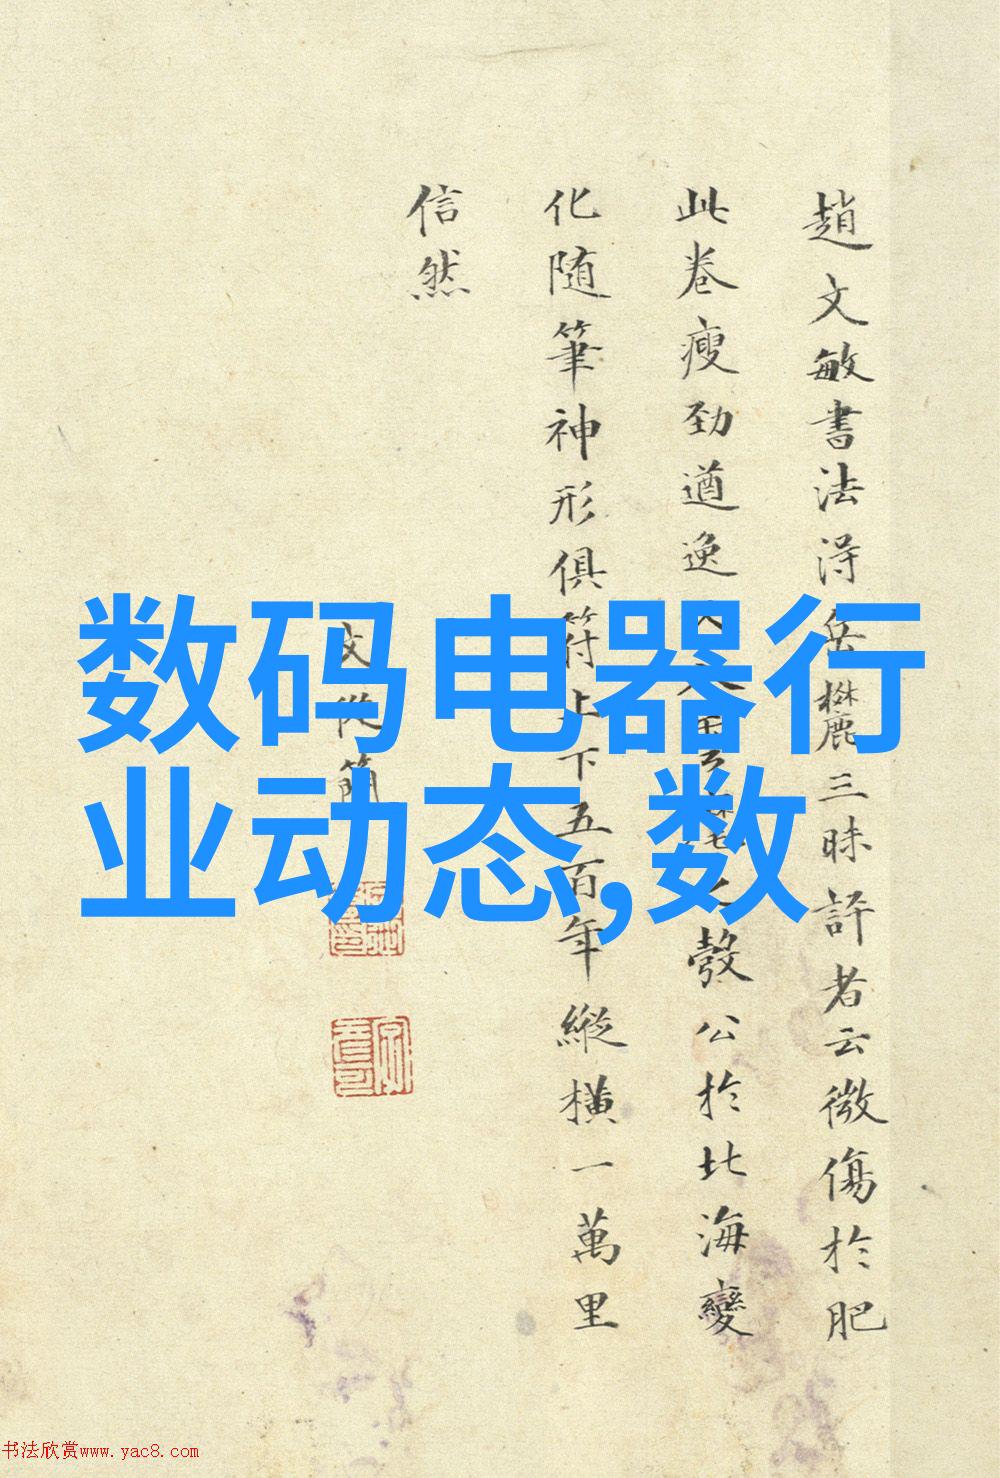 趙文敏書法得岳麓三昧評者云微傷於肥
此卷瘦勁遒逸
彀公於北海變
化随筆神形俱符上下五百年縱横一萬里
信然
文從簡
数码电器行
业动态,数
书法欣赏www.yac8.com